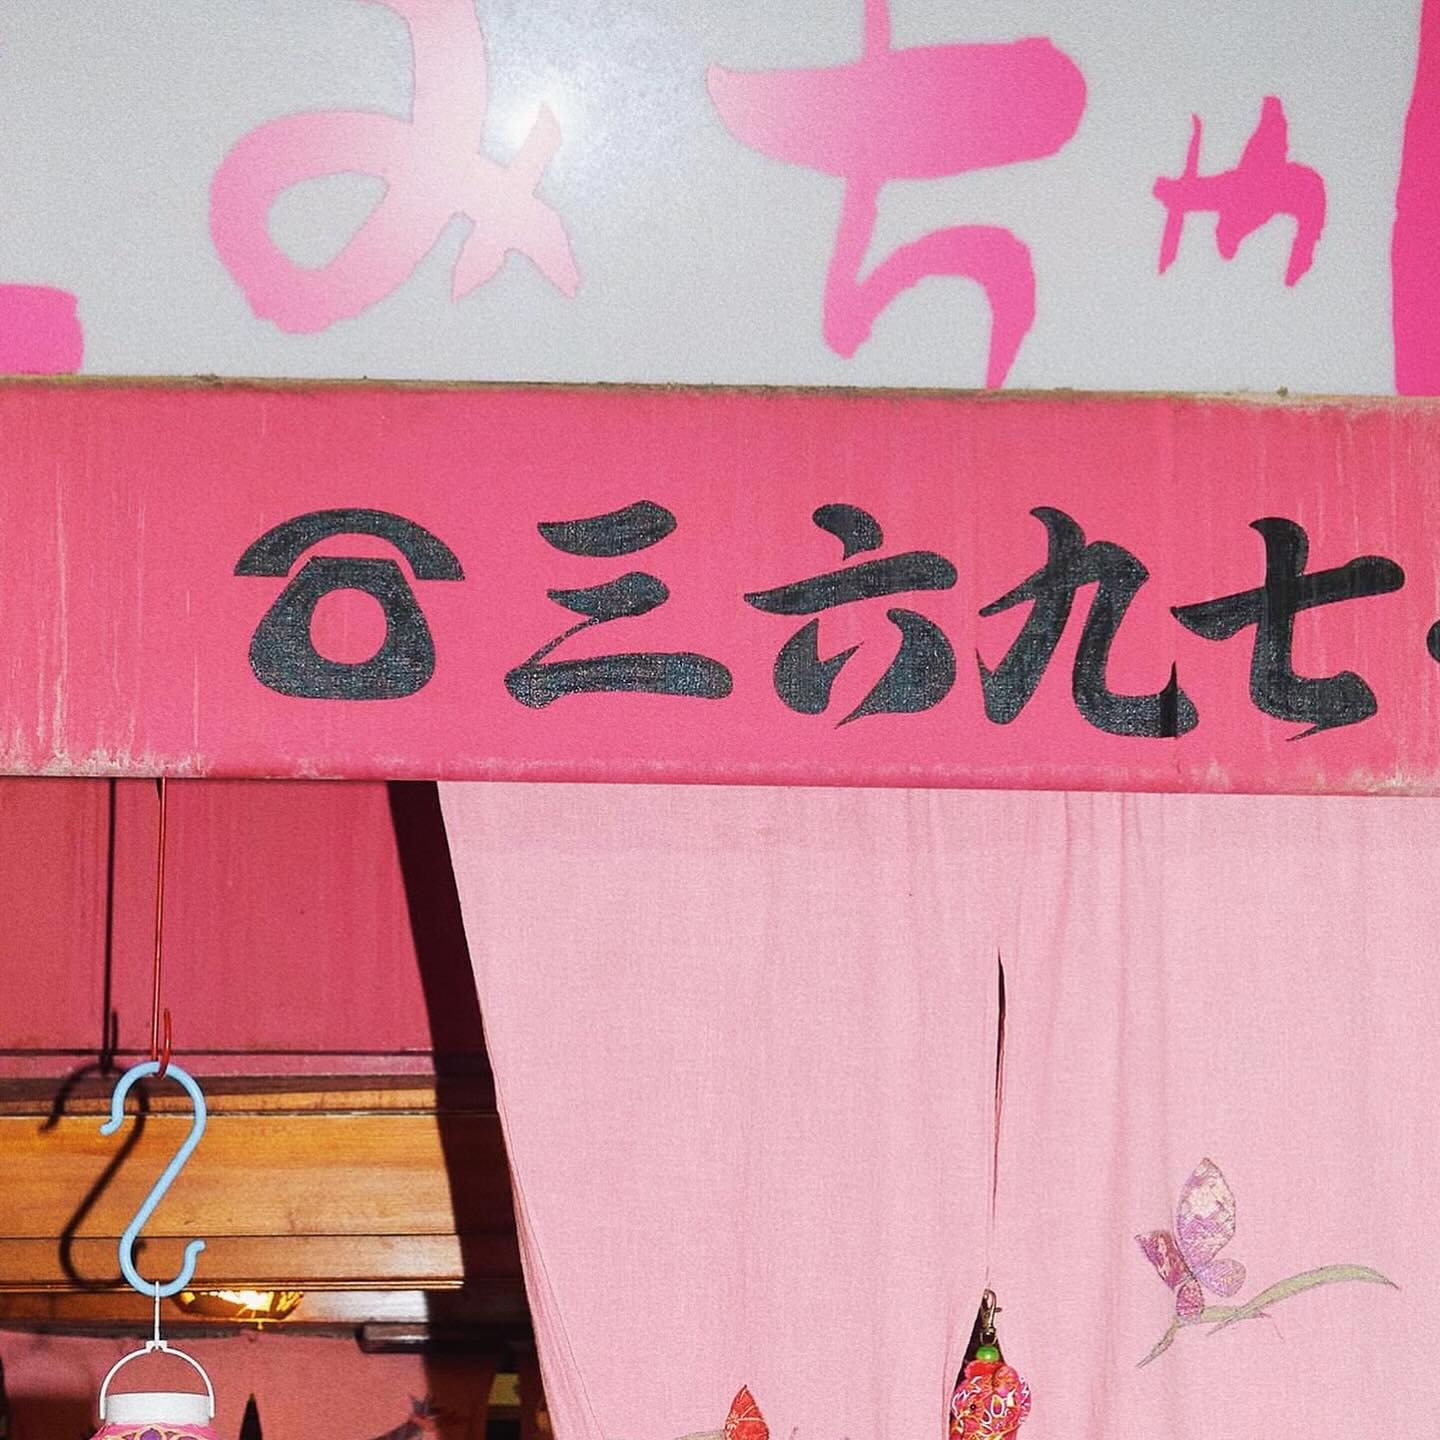 みちゃ
☎三六九七